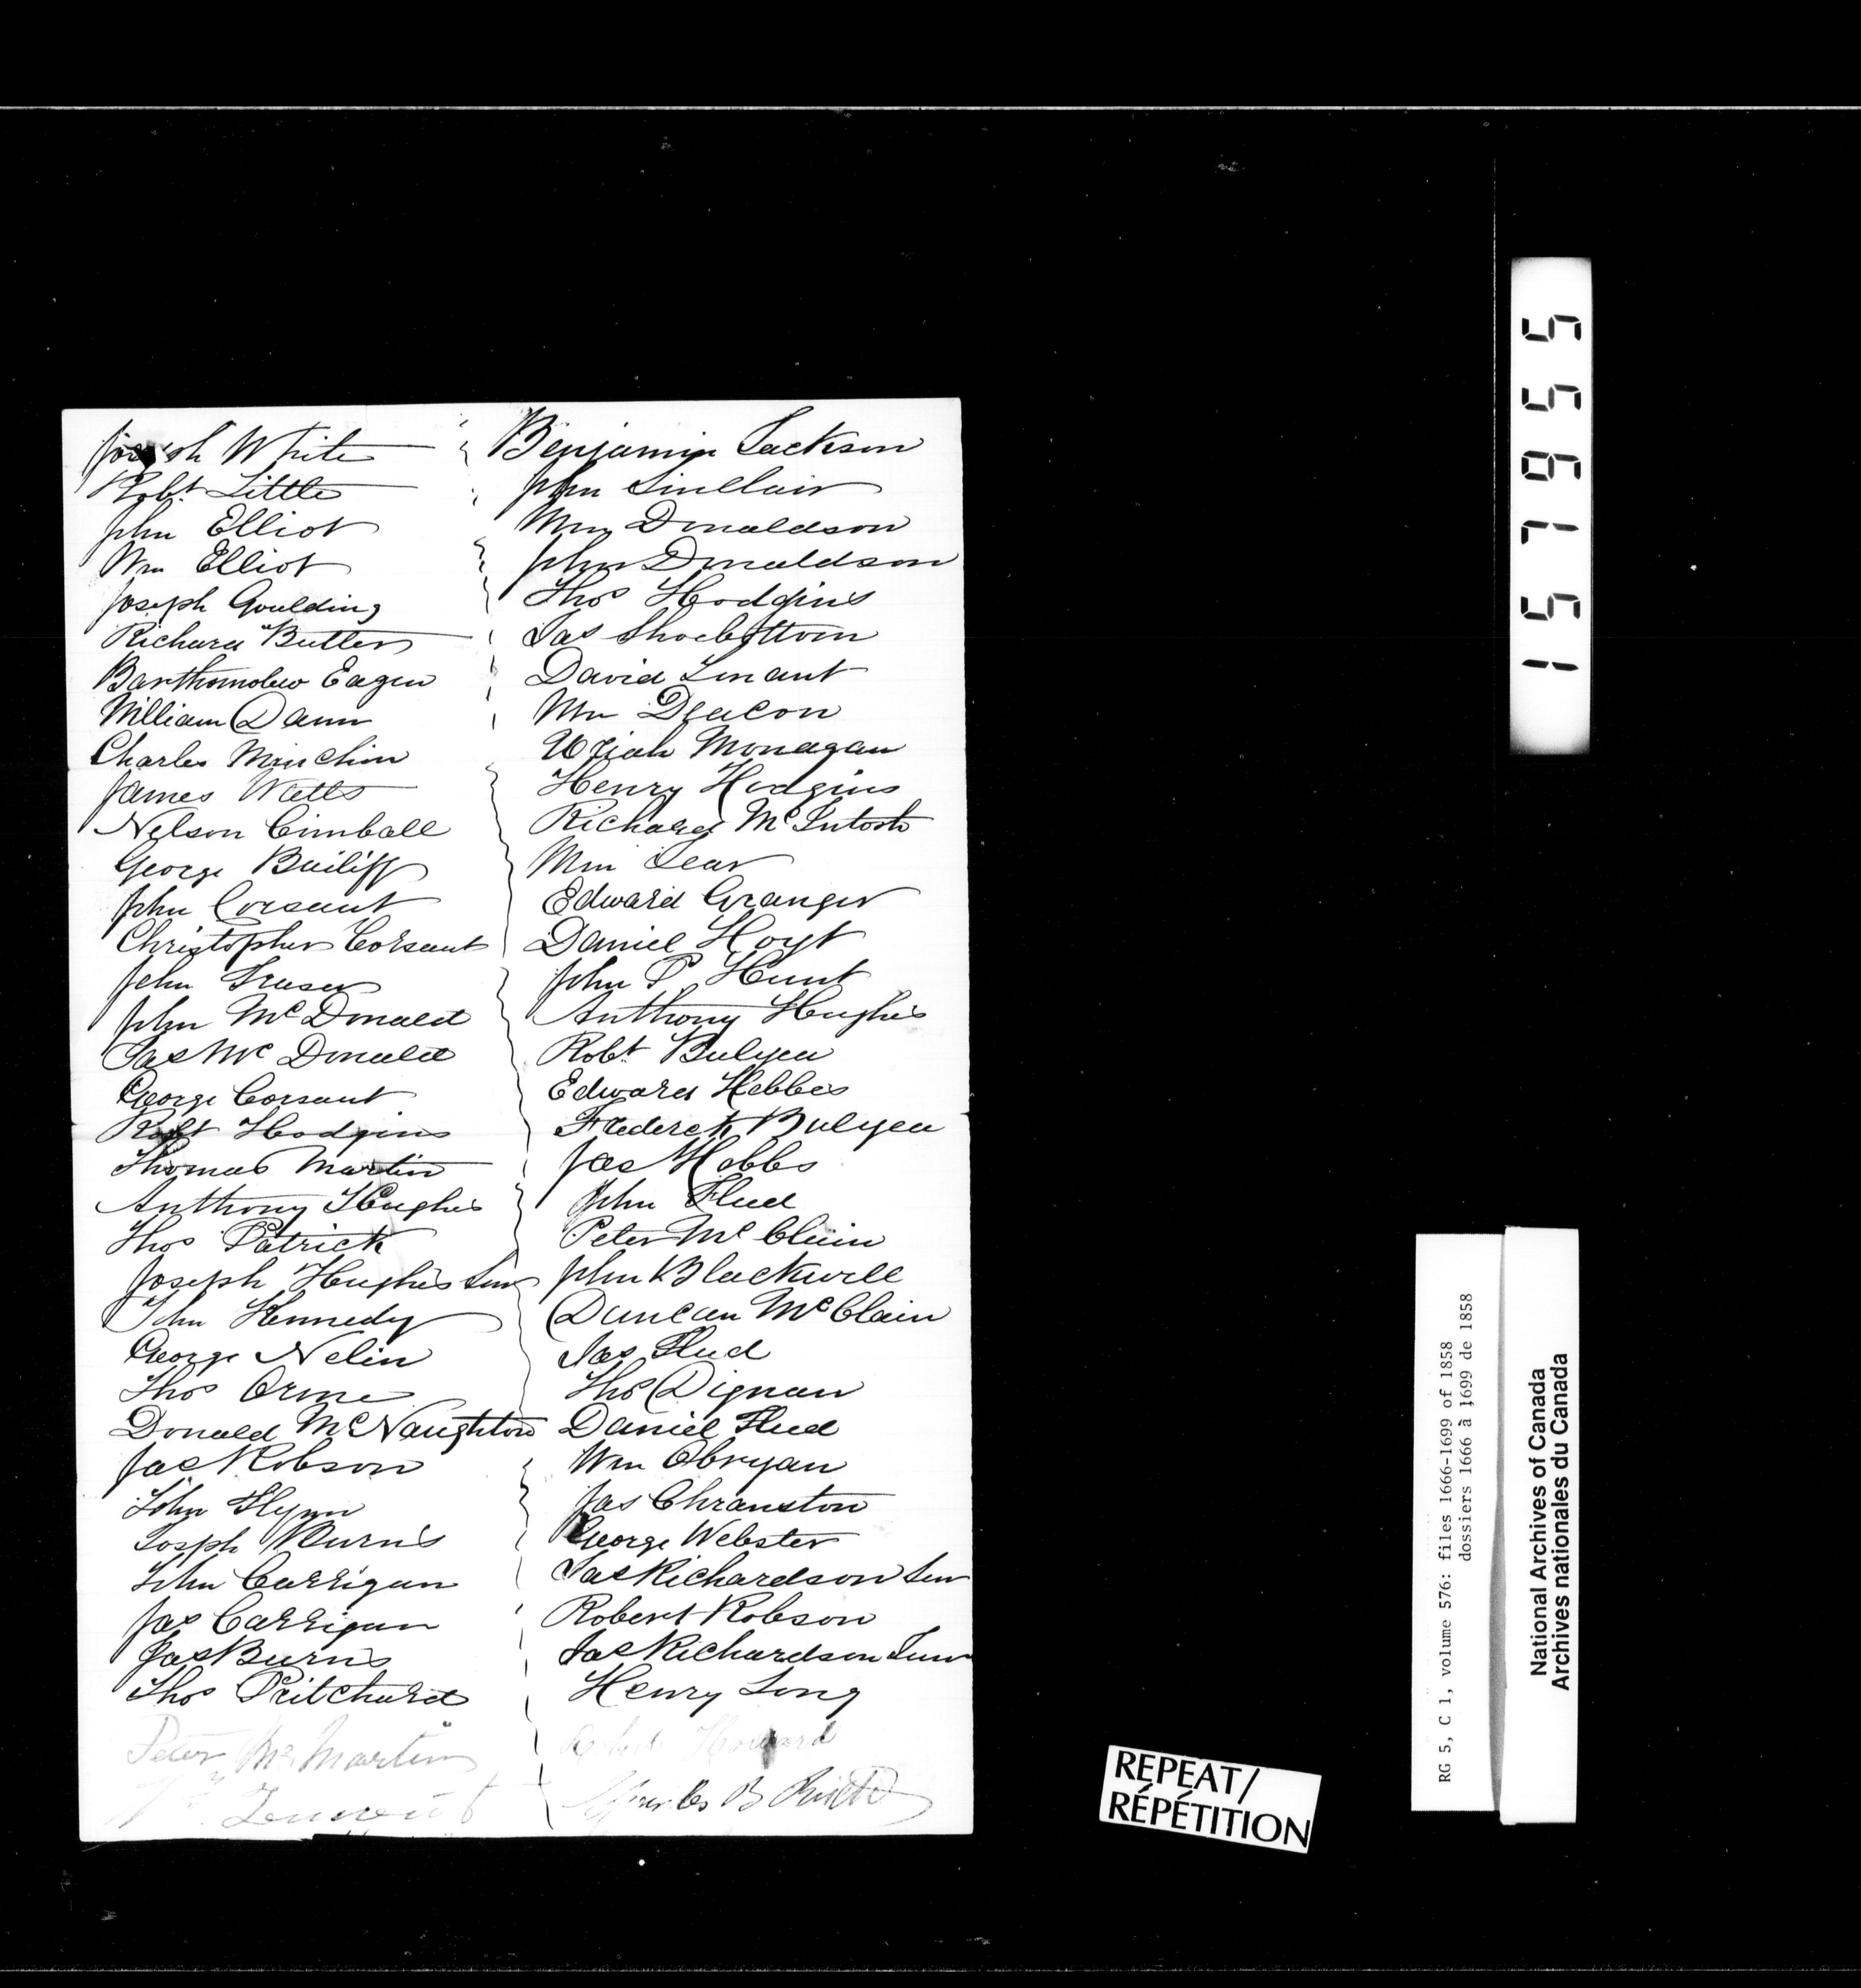 Joseph White
Robt Little
John Elliot
Wm Elliot
Joseph Goulding
Richard Butler
Barthomolew Eagen
William Dann
Charles Minchin
James Watts
Nelson Cimball
George Bailiff
John Corsaut
Christopher Corsaut
John Fraser
John McDonald
Jas McDonald
George Corsaut
Robt Hodgins
Thomas Martin
Anthony Hughes
Thos Patrick
Joseph Hughes Sen
John Kennedy
George Nelin
Thos Orme
Donald McNaughton
Jas Robson
John Flynn
Josph Burns
John Carrigan
Jas Carrigan
Jas Burns
Thos Pritchard
Peter McMartin
Benjamin Jackson
John Sinclair
Wm Donaldson
John Donaldson
Thos Hodgins
Jas Shoebottom
David
Wm Deacon
Uriah Monagan
Henry Hodgins
Richard McIntosh
Wm
Edward Granger
Daniel Hoyt
John P Hunt
Anthony Hughes
Robt Bulyea
Edward Hobbs
Frederck Bulyea
Jas Hobbs
John Flud
Peter McClain
John Blackwell
Duncan McClain
Jas Flud
Thos Dignan
Daniel Flud
Wm Obryan
Jas Chranston
George Webster
Jas Richardson Sen
Robert Robson
Jas Richardson Junr
Henry Long
Howard
Charles B
157955
RG 5, C 1, volume 576: files 1666-1699 of 1858
dossiers 1666 à 1699 de 1858
National Archives of Canada
Archives nationales du Canada
REPEAT/
RÉPÉTITION